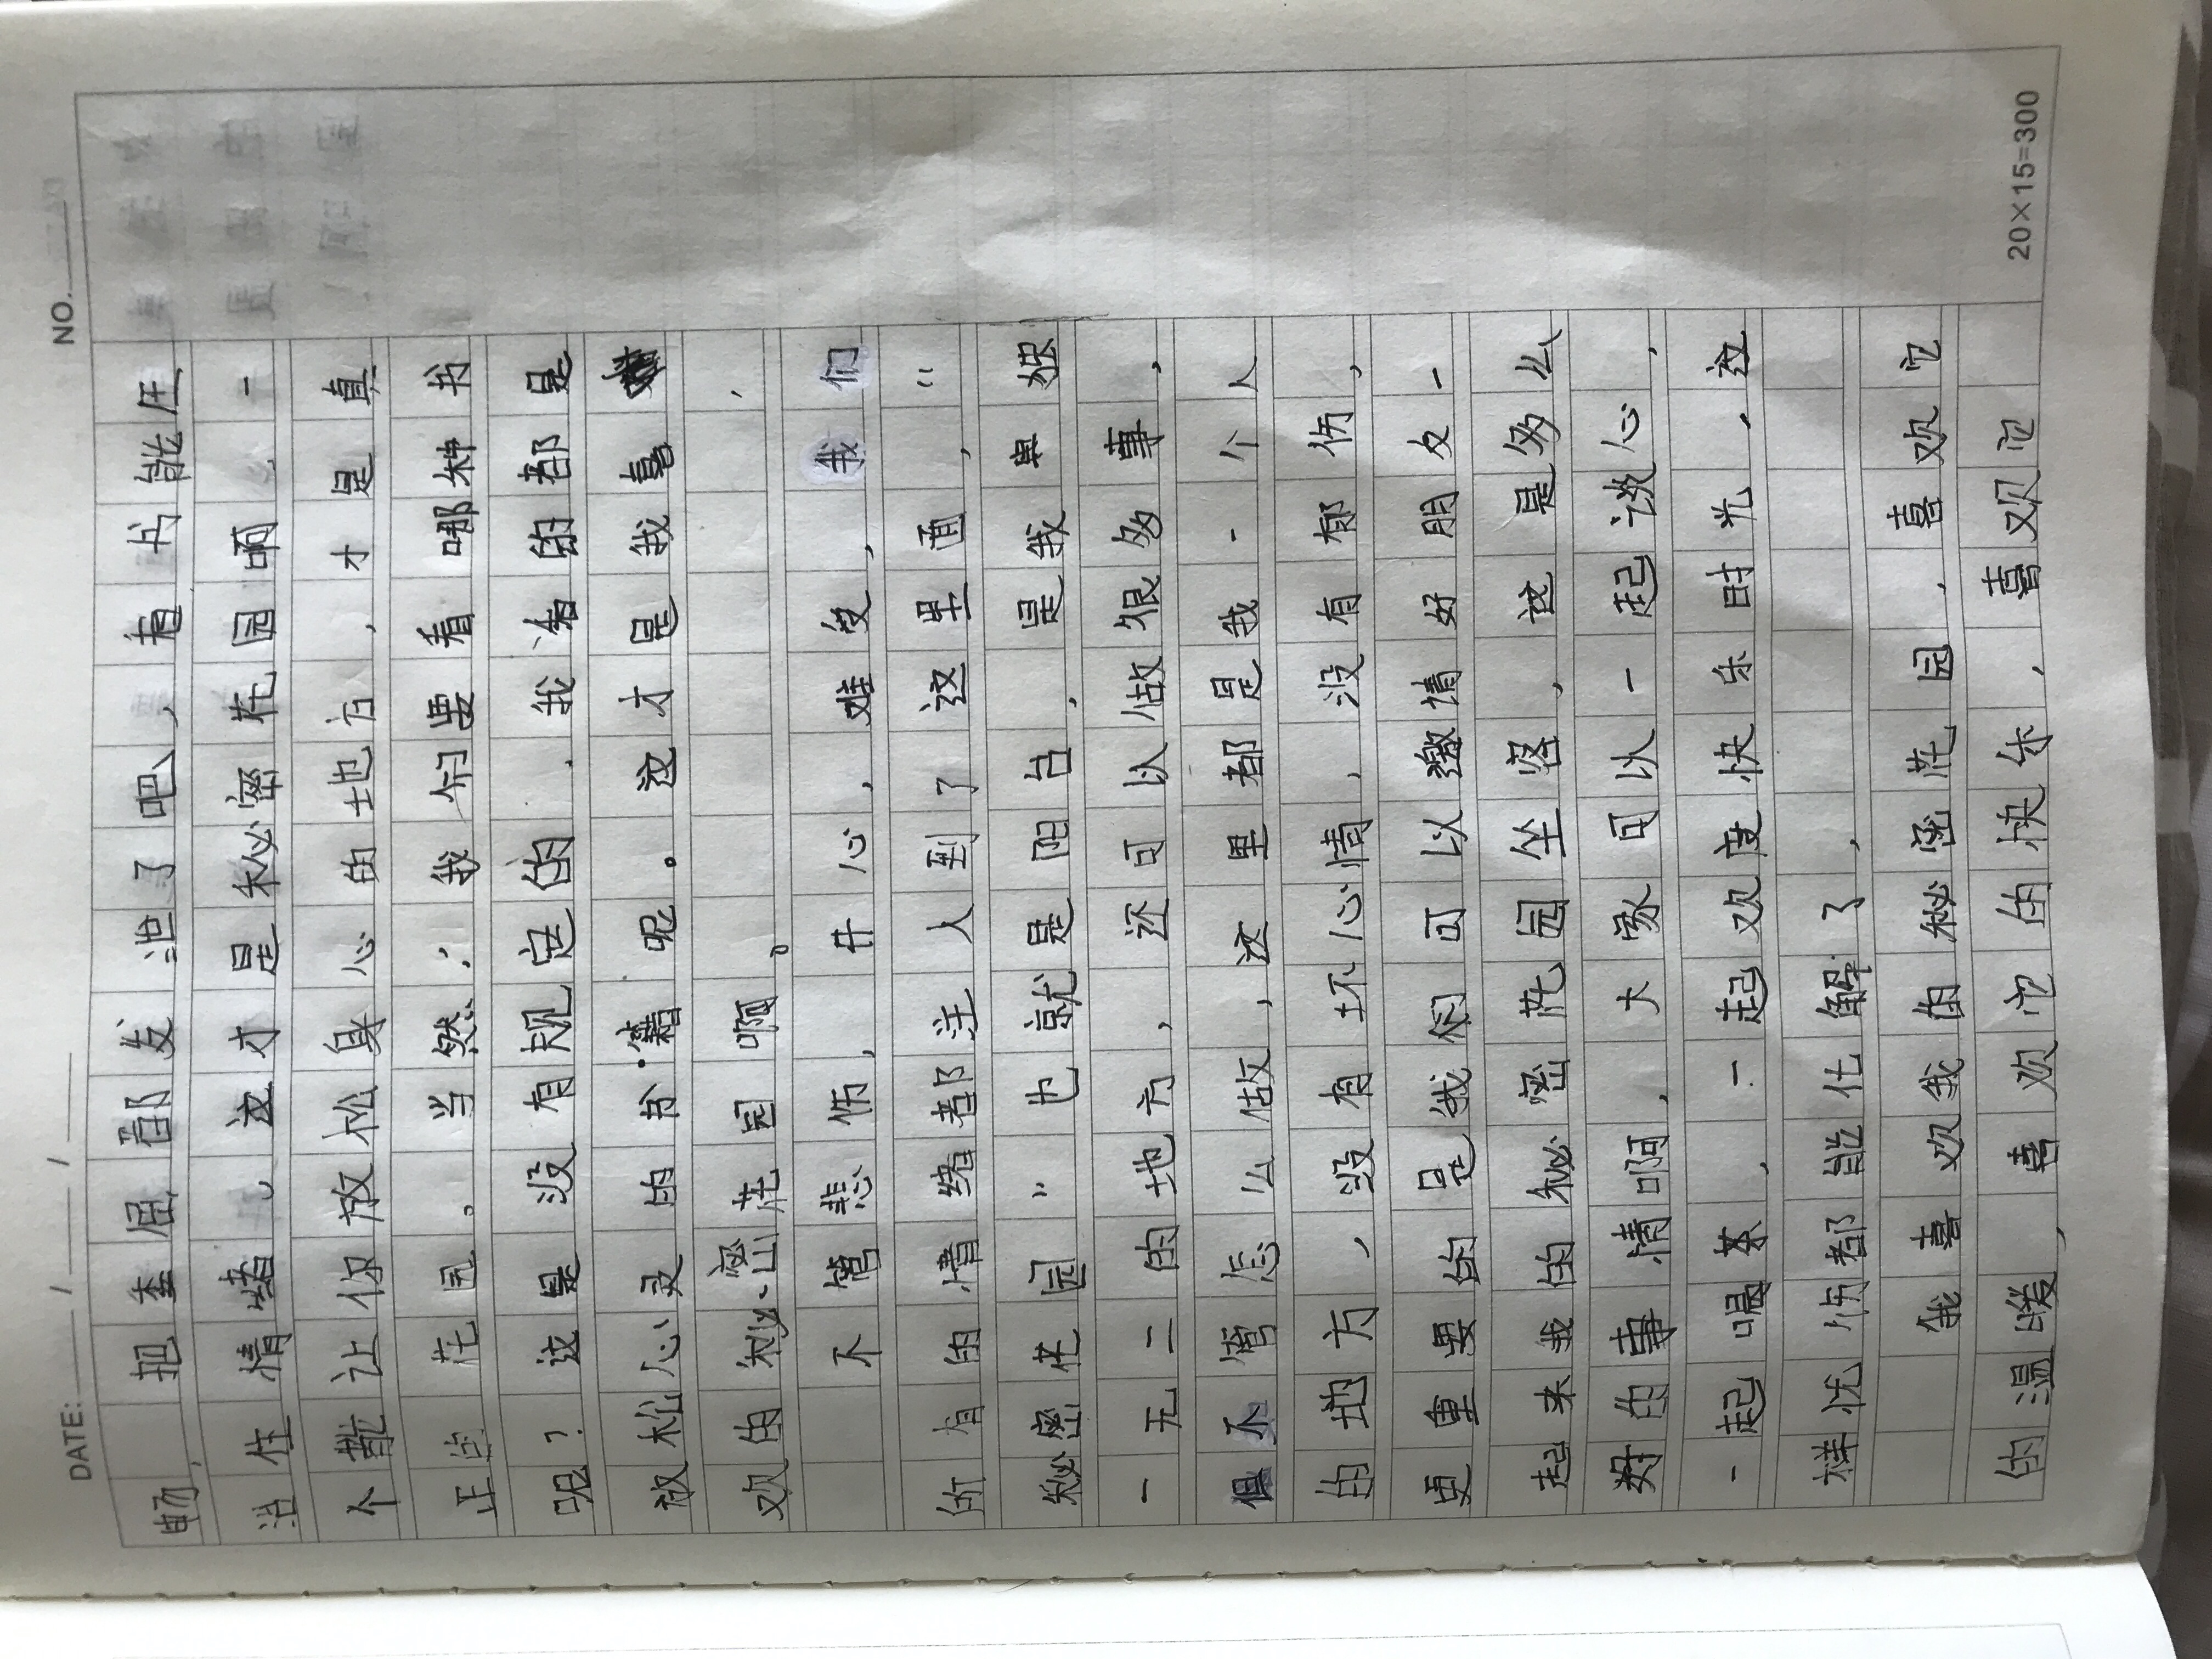 NO.
DATE: / /
畅,把委屈都发泄了吧,看书能压
住情绪。这才是秘密花园啊,一
个能让你放松身心的地方,才是真
正的花园。当然,我们要看哪种书
呢?这是没有规定的,我看的都是
放松心灵的书籍呢。这才是我喜
欢的秘密花园啊。
不管悲伤,开心,难受,我们
所有的情绪都注入到了这里面,“
秘密花园”也就是阳台,是我與独
一无二的地方,还可以做很多事,
但不管怎么做,这里都是我一个人
的地方,没有坏心情,没有郁伤,
更重要的是我们可以邀情好朋友一
起来我的秘密花园坐客,这是多么
好的事情啊,大家可以一起谈心,
一起喝茶,一起欢度快乐时光,这
样忧伤都能化解了,
我喜欢我的秘密花园,喜欢它
的温暖,喜欢它的快乐,喜欢它
20×15=300